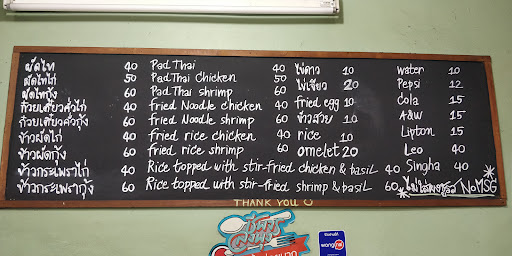 ผัดไท 40 Pad Thai 40 ไข่ดาว 10 water 10
ผัดไทไก่ 50 Pad Thai Chicken 50 ไข่เจียว 20 Pepsi 12
ผัดไทกุ้ง 60 Pad Thai shrimp 60 fried egg 10 Cola 15
ก๋วยเตี๋ยวคั่วไก่ 40 fried Noodle chicken 40 ข้าวสวย 10 A&W 15
ก๋วยเตี๋ยวคั่วกุ้ง 60 fried Noodle shrimp 60 rice 10 Lipton 15
ข้าวผัดไก่ 40 fried rice chicken 40 omelet 20 Leo 40
ข้าวผัดกุ้ง 60 fried rice shrimp 60 Singha 40
ข้าวกระเพราไก่ 40 Rice topped with stir-fried chicken & basil 40
ข้าวกระเพรากุ้ง 60 Rice topped with stir-fried shrimp & basil 60 ไม่ใส่ผงชูรส No MSG
THANK YOU
wongnai